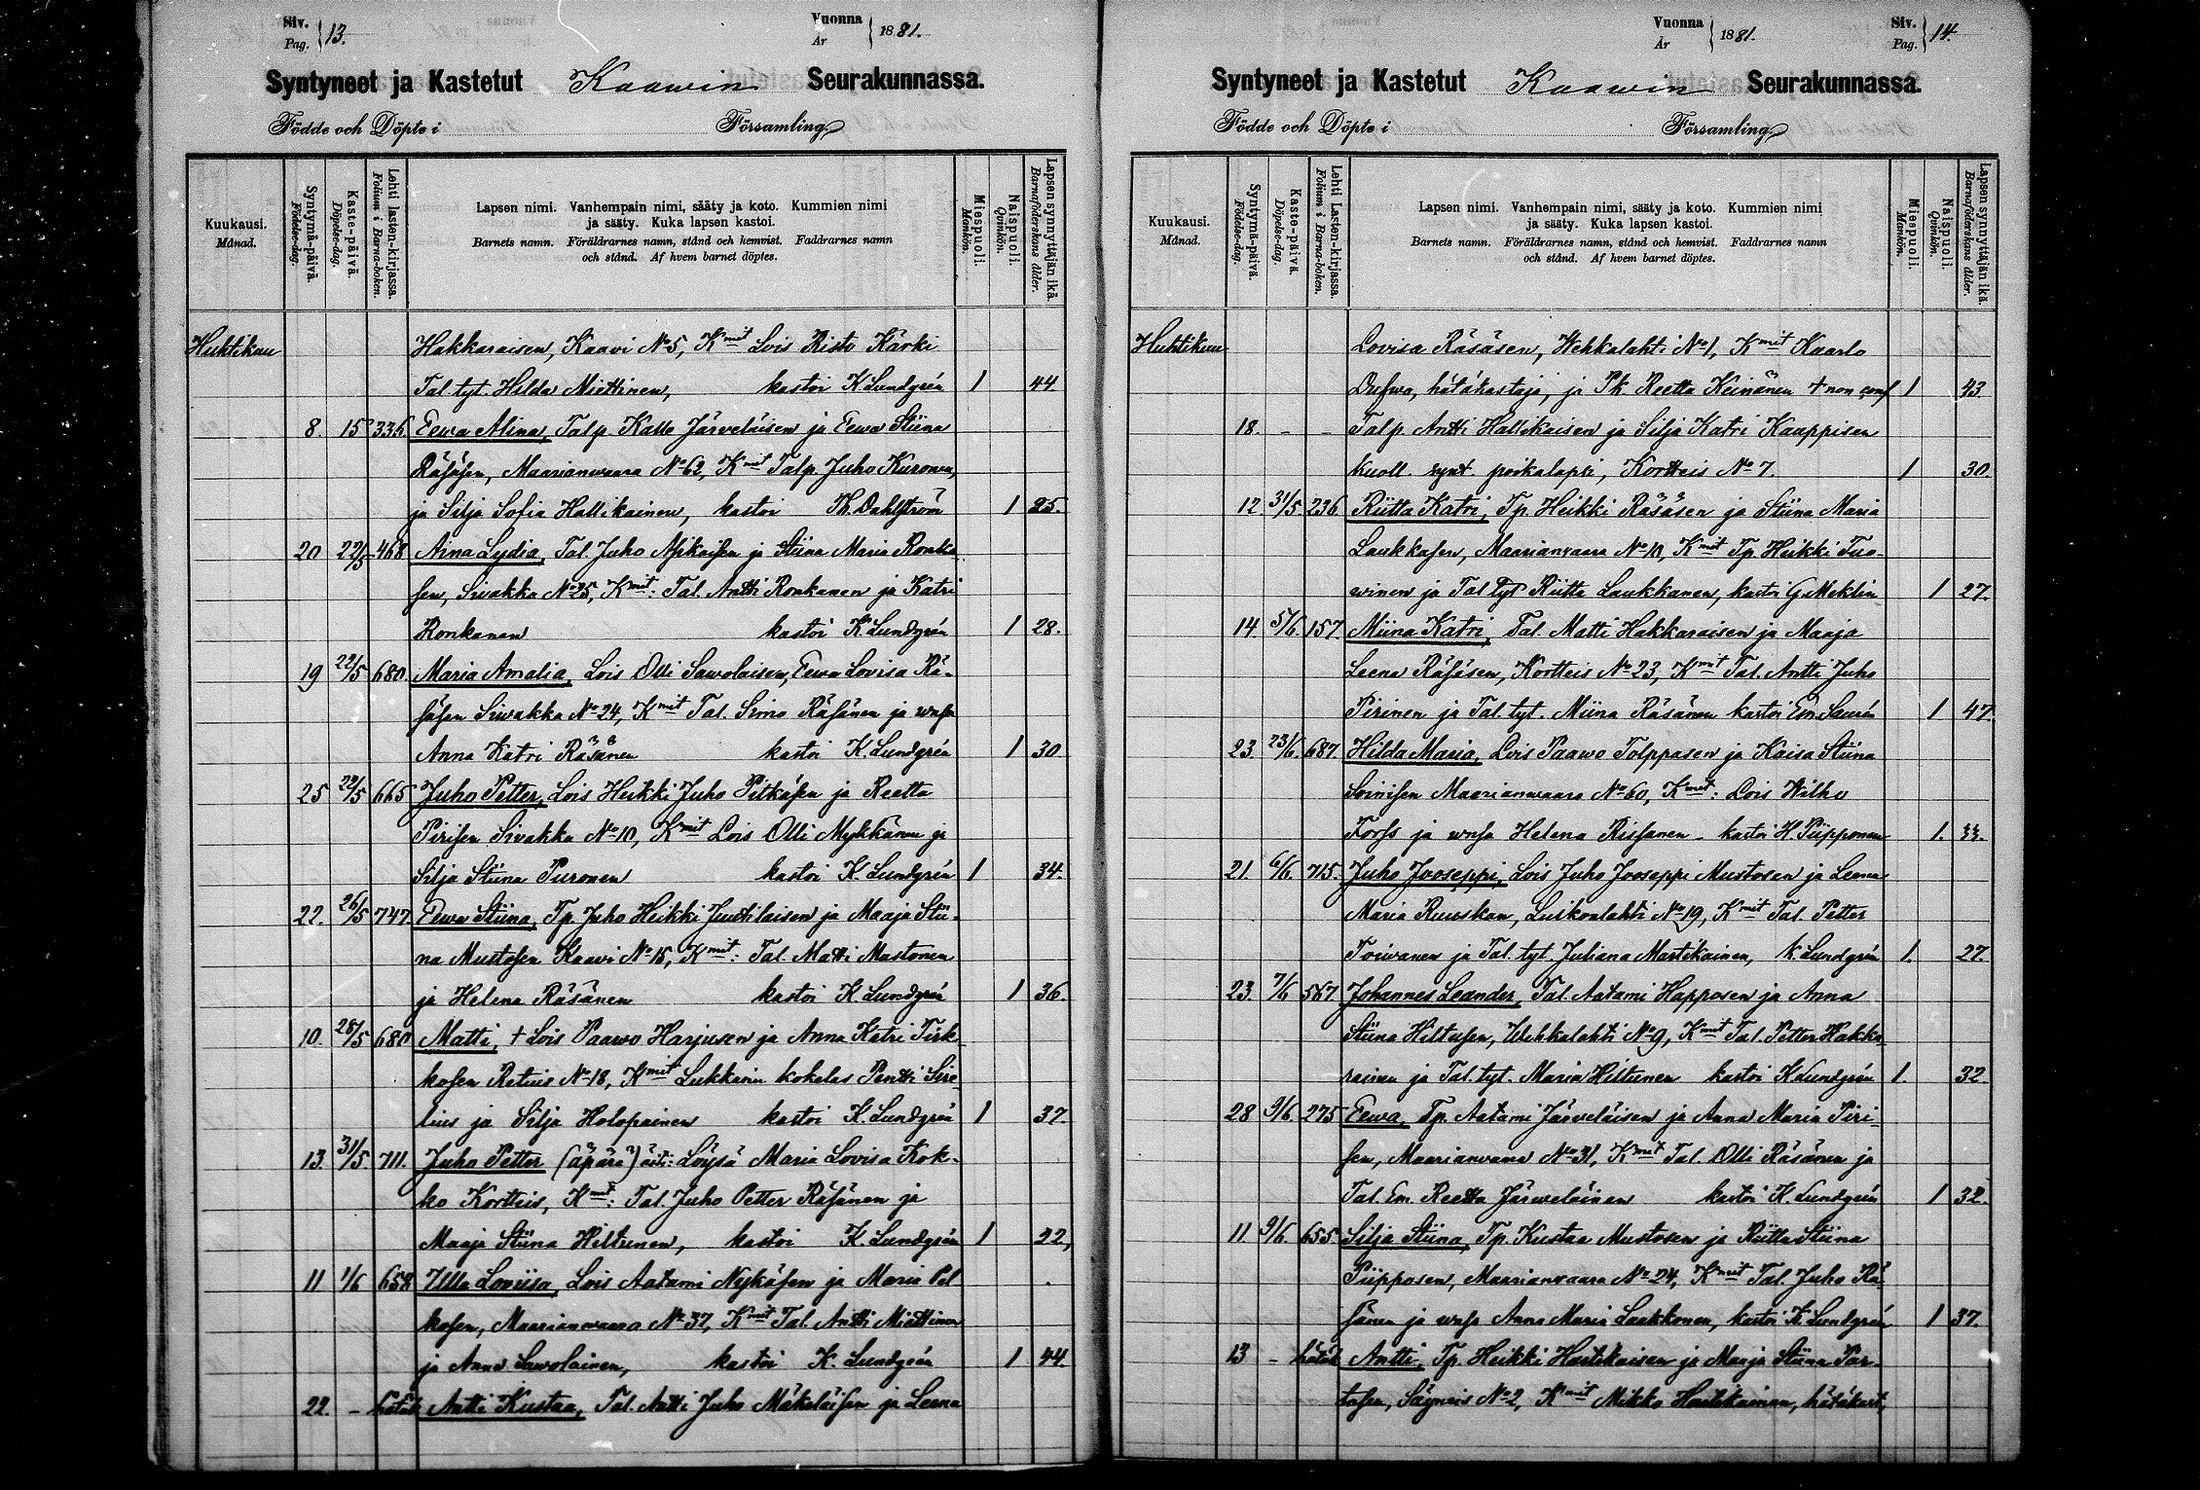 Siv. Pag. 13. Vuonna År 1881.
Syntyneet ja Kastetut Kaawin Seurakunnassa.
Födde och Döpte i Församling
Kuukausi. Månad.
Syntymä-päivä. Födelse-dag.
Kaste-päivä. Döpelse-dag.
Lehti lasten-kirjassa. Folium i Barna-boken.
Lapsen nimi. Vanhempain nimi, sääty ja koto. Kummien nimi
ja sääty. Kuka lapsen kastoi.
Barnets namn. Föräldrarnes namn, stånd och hemvist. Faddrarnes namn
och stånd. Af hvem barnet döptes.
Miespuoli. Mankön.
Naispuoli. Qvinkön.
Lapsen synnyttäjän ikä. Barnaföderskans ålder.
Huhtikuu Hakkaraisen, Kaavi No 5, Kmit Lois Risto Kärki
Tal. tyt. Hilda Miettinen, kastoi K. Lundgrén 1 44
8. 15 336 Eewa Alina, Talp. Kalle Järveläisen ja Eewa Stiina
Räsäsen, Maarianvaara No 62, Kmit Talp. Juho Kuronen,
ja Silja Sofia Hallikainen, kastoi Th. Dahlström 1 25.
20 22/5 468 Aina Lydia, Tal. Juho Asikaisen ja Stiina Maria Ronka
sen, Sivakka No 25, Kmit: Tal. Antti Ronkanen ja Katri
Ronkanen kastoi K. Lundgrén 1 28.
19 22/5 680 Maria Amalia, Lois Olli Sawolaisen, Eewa Lovisa Rä-
säsen Siwakka No 24, Kmit Tal. Simo Räsänen ja wmsa
Anna Katri Räsänen kastoi K. Lundgrén 1 30
25 29/5 665 Juho Petter, Lois Heikki Juho Pitkäsen ja Reetta
Pirisen Sivakka No 10, Kmit Lois Olli Mykkänen ja
Silja Stiina Puronen kastoi K. Lundgrén 1 34.
22. 26/5 747 Eewa Stiina, Tp. Juho Heikki Juutilaisen ja Maaja Stii-
na Mustosen Kaavi No 15, Kmit: Tal. Matti Mustonen
ja Helena Räsänen kastoi K. Lundgrén 1 36.
10. 28/5 680 Matti, + Lois Paawo Harjusen ja Anna Katri Tirk-
kosen Retuis No 18, Kmit Lukkarin kokelas Pentti Sire-
lius ja Silja Holopainen kastoi K. Lundgrén 1 37.
13. 31/5 711. Juho Petter (äpärä) äiti: Löysä Maria Lovisa Kok-
ko Kortteis, Kmit: Tal. Juho Petter Räsänen ja
Maaja Stiina Hiltunen, kastoi K. Lundgrén 1 22,
11 1/6 658 Ulla Loviisa, Lois Aatami Nykäsen ja Maria Pel
kosen, Maarianvaara No 37, Kmit Tal. Antti Miettinen
ja Anna Sawolainen, kastoi K. Lundgrén 1 44
22. - hätäk Antti Kustaa, Tal. Antti Juho Mäkeläisen ja Leena
Vuonna År 1881. Siv. Pag. 14.
Syntyneet ja Kastetut Kaawin Seurakunnassa.
Födde och Döpte i Församling
Kuukausi. Månad.
Syntymä-päivä. Födelse-dag.
Kaste-päivä. Döpelse-dag.
Lehti Lasten-kirjassa. Folium i Barna-boken.
Lapsen nimi. Vanhempain nimi, sääty ja koto. Kummien nimi
ja sääty. Kuka lapsen kastoi.
Barnets namn. Föräldrarnes namn, stånd och hemvist. Faddrarnes namn
och stånd. Af hvem barnet döptes.
Miespuoli. Mankön.
Naispuoli. Qvinkön.
Lapsen synnyttäjän ikä. Barnaföderskans ålder.
Huhtikuu Lovisa Räsäsen, Wehkalahti No 1, Kmit Kaarlo
Dufwa, hätäkastaja, ja Pk Reetta Keinänen + non conf 1 43.
18. - - Talp. Antti Hallikaisen ja Silja Katri Kauppisen
kuoll. synt. poikalapsi, Kortteis No 7. 1 30.
12 31/5 236 Riitta Katri, Tp. Heikki Räsäsen ja Stiina Maria
Laukkasen, Maarianvaara No 10, Kmit Tp. Heikki Tuo-
winen ja Tal tyt Riitta Laukkanen, kastoi G Meklin 1 27.
14 5/6. 157 Miina Katri, Tal. Matti Hakkaraisen ja Maaja
Leena Räsäsen, Kortteis No 23, Kmit Tal. Antti Juho
Pirinen ja Tal. tyt. Miina Räsänen kastoi Em. Saurén 1 47.
23. 23/6. 687. Hilda Maria, Lois Paawo Tolppasen ja Kaisa Stiina
Soinisen Maarianvaara No 60, Kmit: Lois Wilho
Forss ja wmsa Helena Rissanen - kastoi H. Piipponen 1. 33.
21. 6/6. 715. Juho Jooseppi, Lois Juho Jooseppi Mustosen ja Leena
Maria Ruuskan, Luikonlahti No 19, Kmit Tal. Petter
Toiwanen ja Tal. tyt. Juliana Martikainen, K. Lundgrén 1. 27.
23. 7/6 567 Johannes Leander, Tal. Aatami Happosen ja Anna
Stiina Hiltusen, Wehkalahti No 9, Kmit Tal. Petter Hakka-
rainen ja Tal. tyt. Maria Hiltunen kastoi K Lundgrén 1. 32
28 9/6. 275 Eewa, Tp. Aatami Järveläisen ja Anna Maria Piri-
sen, Maarianvaara No 31, Kmit Tal. Olli Räsänen ja
Tal. Em. Reetta Järweläinen kastoi K. Lundgrén 1 32.
11 9/6 655. Silja Stiina, Tp. Kustaa Mustosen ja Riitta Stiina
Piipposen, Maarianvaara No 24, Kmit Tal. Juho Rä-
sänen ja wmsa Anna Maria Laakkonen, kastoi K. Lundgrén 1 37.
13 - hätäk Antti, Tp. Heikki Hartikaisen ja Maaja Stiina Par-
tasen, Säyneis No 2, Kmit Mikko Hartikainen, hätäkast,